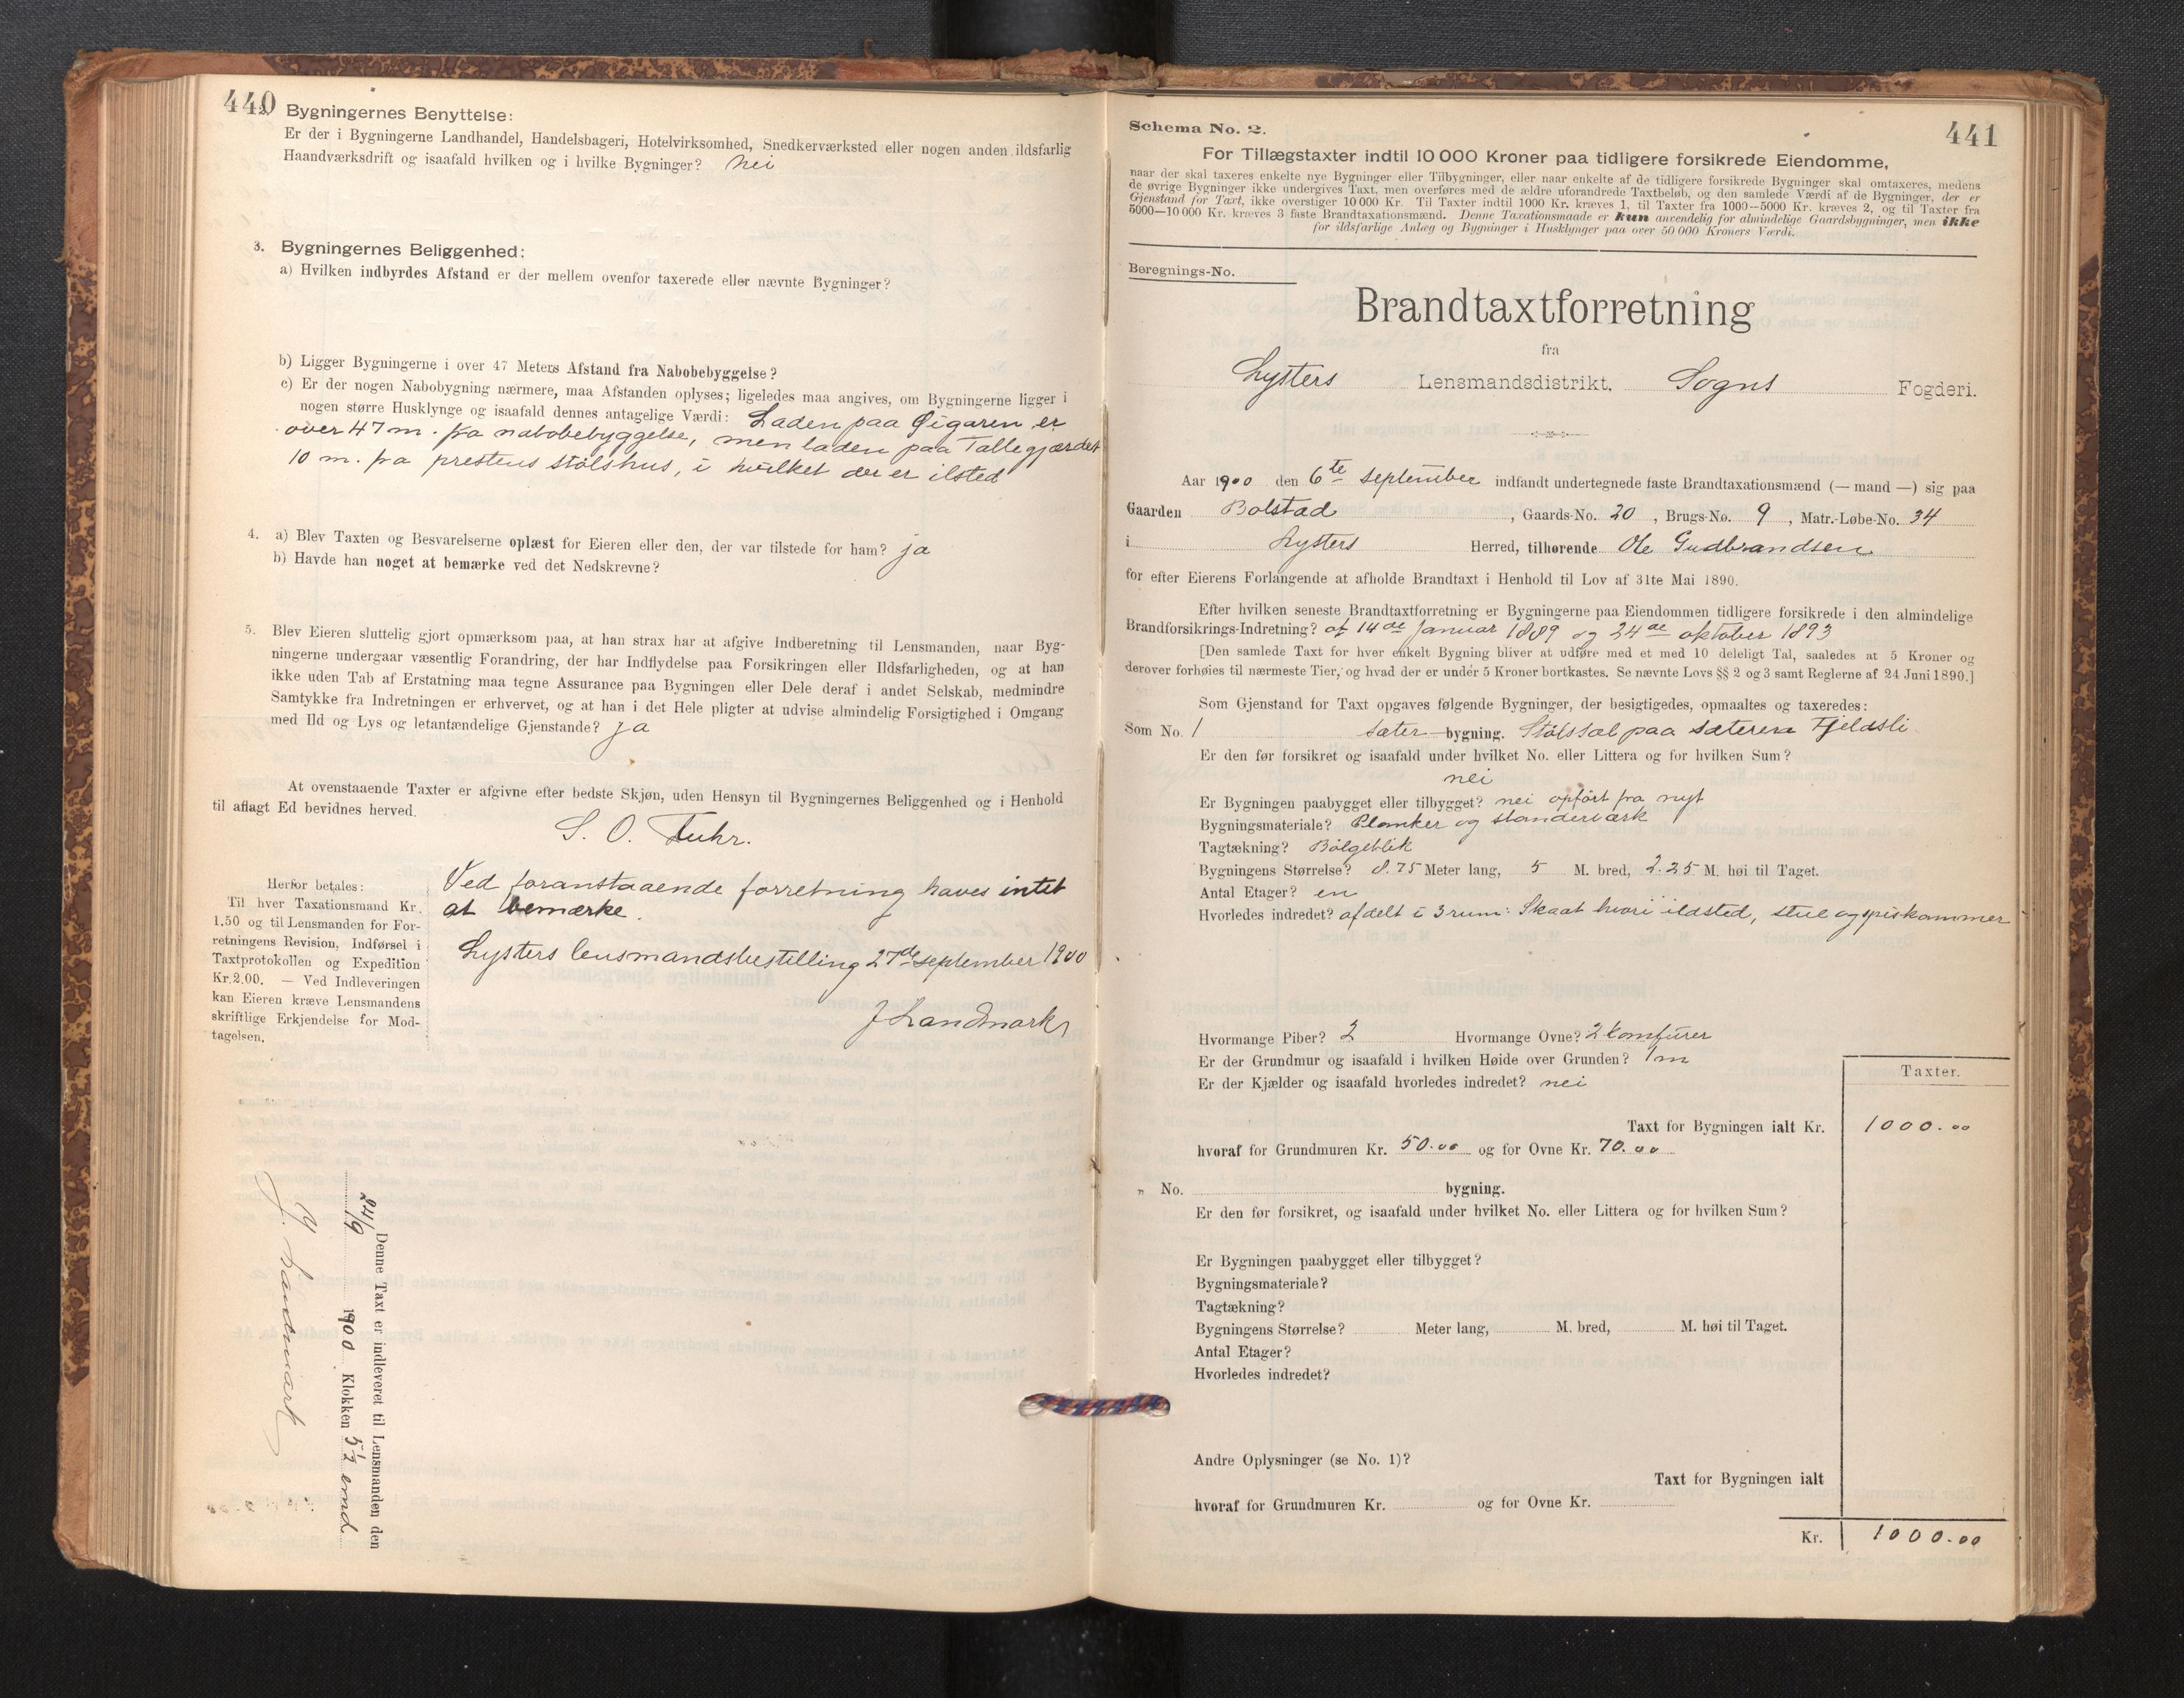 440
Bygningernes Benyttelse:
Er der i Bygningerne Landhandel, Handelsbageri, Hotelvirksomhed, Snedkerværksted eller nogen anden ildsfarlig
Haandværksdrift og isaafald hvilken og i hvilke Bygninger? nei
3. Bygningernes Beliggenhed:
a) Hvilken indbyrdes Afstand er der mellem ovenfor taxerede eller nævnte Bygninger?
b) Ligger Bygningerne i over 47 Meters Afstand fra Nabobebyggelse?
c) Er der nogen Nabobygning nærmere, maa Afstanden oplyses; ligeledes maa angives, om Bygningerne ligger i
nogen større Husklynge og isaafald dennes antagelige Værdi: Laden paa Øigaren er
over 47 m. fra nabobebyggelse, men laden paa Tallegjærdet
10 m. fra prestens stølshus, i hvilket der er ilsted
4. a) Blev Taxten og Besvarelserne oplæst for Eieren eller den, der var tilstede for ham? ja
b) Havde han noget at bemærke ved det Nedskrevne?
5. Blev Eieren sluttelig gjort opmærksom paa, at han strax har at afgive Indberetning til Lensmanden, naar Byg-
ningerne undergaar væsentlig Forandring, der har Indflydelse paa Forsikringen eller Ildsfarligheden, og at han
ikke uden Tab af Erstatning maa tegne Assurance paa Bygningen eller Dele deraf i andet Selskab, medmindre
Samtykke fra Indretningen er erhvervet, og at han i det Hele pligter at udvise almindelig Forsigtighed i Omgang
med Ild og Lys og letantændelige Gjenstande? ja
At ovenstaaende Taxter er afgivne efter bedste Skjøn, uden Hensyn til Bygningernes Beliggenhed og i Henhold
til aflagt Ed bevidnes herved.
S. O. Fuhr.
Herfor betales:
Til hver Taxationsmand Kr.
1.50 og til Lensmanden for For-
retningens Revision, Indførsel i
Taxtprotokollen og Expedition
Kr. 2.00. — Ved Indleveringen
kan Eieren kræve Lensmandens
skriftlige Erkjendelse for Mod-
tagelsen.
Ved foranstaaende forretning haves intet
at bemærke.
Lysters lensmandsbestilling 27de september 1900
J Landmark
Denne Taxt er indleveret til Lensmanden den
24/9 1900 Klokken 5½ emd
J. Landmark
441
Schema No. 2.
For Tillægstaxter indtil 10 000 Kroner paa tidligere forsikrede Eiendomme,
naar der skal taxeres enkelte nye Bygninger eller Tilbygninger, eller naar enkelte af de tidligere forsikrede Bygninger skal omtaxeres, medens
de øvrige Bygninger ikke undergives Taxt, men overføres med de ældre uforandrede Taxtbeløb, og den samlede Værdi af de Bygninger, der er
Gjenstand for Taxt, ikke overstiger 10 000 Kr. Til Taxter indtil 1000 Kr. kræves 1, til Taxter fra 1000—5000 Kr. kræves 2, og til Taxter fra
5000—10 000 Kr. kræves 3 faste Brandtaxationsmænd. Denne Taxationsmaade er kun anvendelig for almindelige Gaardsbygninger, men ikke
for ildsfarlige Anlæg og Bygninger i Husklynger paa over 50 000 Kroners Værdi.
Beregnings-No.
Brandtaxtforretning
fra
Lysters Lensmandsdistrikt, Sogns Fogderi.
Aar 1900 den 6te september indfandt undertegnede faste Brandtaxationsmænd (— mand —) sig paa
Gaarden Bolstad, Gaards-No. 20, Brugs-No. 9, Matr.-Løbe-No. 34
i Lysters Herred, tilhørende Ole Gudbrandsen
for efter Eierens Forlangende at afholde Brandtaxt i Henhold til Lov af 31te Mai 1890.
Efter hvilken seneste Brandtaxtforretning er Bygningerne paa Eiendommen tidligere forsikrede i den almindelige
Brandforsikrings-Indretning? af 14de Januar 1889 og 24de oktober 1893
[Den samlede Taxt for hver enkelt Bygning bliver at udføre med et med 10 deleligt Tal, saaledes at 5 Kroner og
derover forhøies til nærmeste Tier, og hvad der er under 5 Kroner bortkastes. Se nævnte Lovs §§ 2 og 3 samt Reglerne af 24 Juni 1890.]
Som Gjenstand for Taxt opgaves følgende Bygninger, der besigtigedes, opmaaltes og taxeredes:
Som No. 1 sæter bygning. Stølssæl paa sæteren Fjeldsli
Er den før forsikret og isaafald under hvilket No. eller Littera og for hvilken Sum?
nei
Er Bygningen paabygget eller tilbygget? nei opført fra nyt
Bygningsmateriale? Planker og standerværk
Tagtækning? Bølgeblik
Bygningens Størrelse? 8.75 Meter lang, 5 M. bred, 2.25 M. høi til Taget.
Antal Etager? en
Hvorledes indredet? afdelt i 3 rum: Skaat hvori ildsted, stue og spiskammer
Hvormange Piber? 2 Hvormange Ovne? 2 komfurer
Er der Grundmur og isaafald i hvilken Høide over Grunden? 1 m
Er der Kjælder og isaafald hvorledes indredet? nei
Taxter.
Taxt for Bygningen ialt Kr. 1000.00
hvoraf for Grundmuren Kr. 50.00 og for Ovne Kr. 70.00
„ No. bygning.
Er den før forsikret, og isaafald under hvilket No. eller Littera og for hvilken Sum?
Er Bygningen paabygget eller tilbygget?
Bygningsmateriale?
Tagtækning?
Bygningens Størrelse? Meter lang, M. bred, M. høi til Taget.
Antal Etager?
Hvorledes indredet?
Andre Oplysninger (se No. 1)?
Taxt for Bygningen ialt
hvoraf for Grundmuren Kr. og for Ovne Kr.
Kr. 1000.00